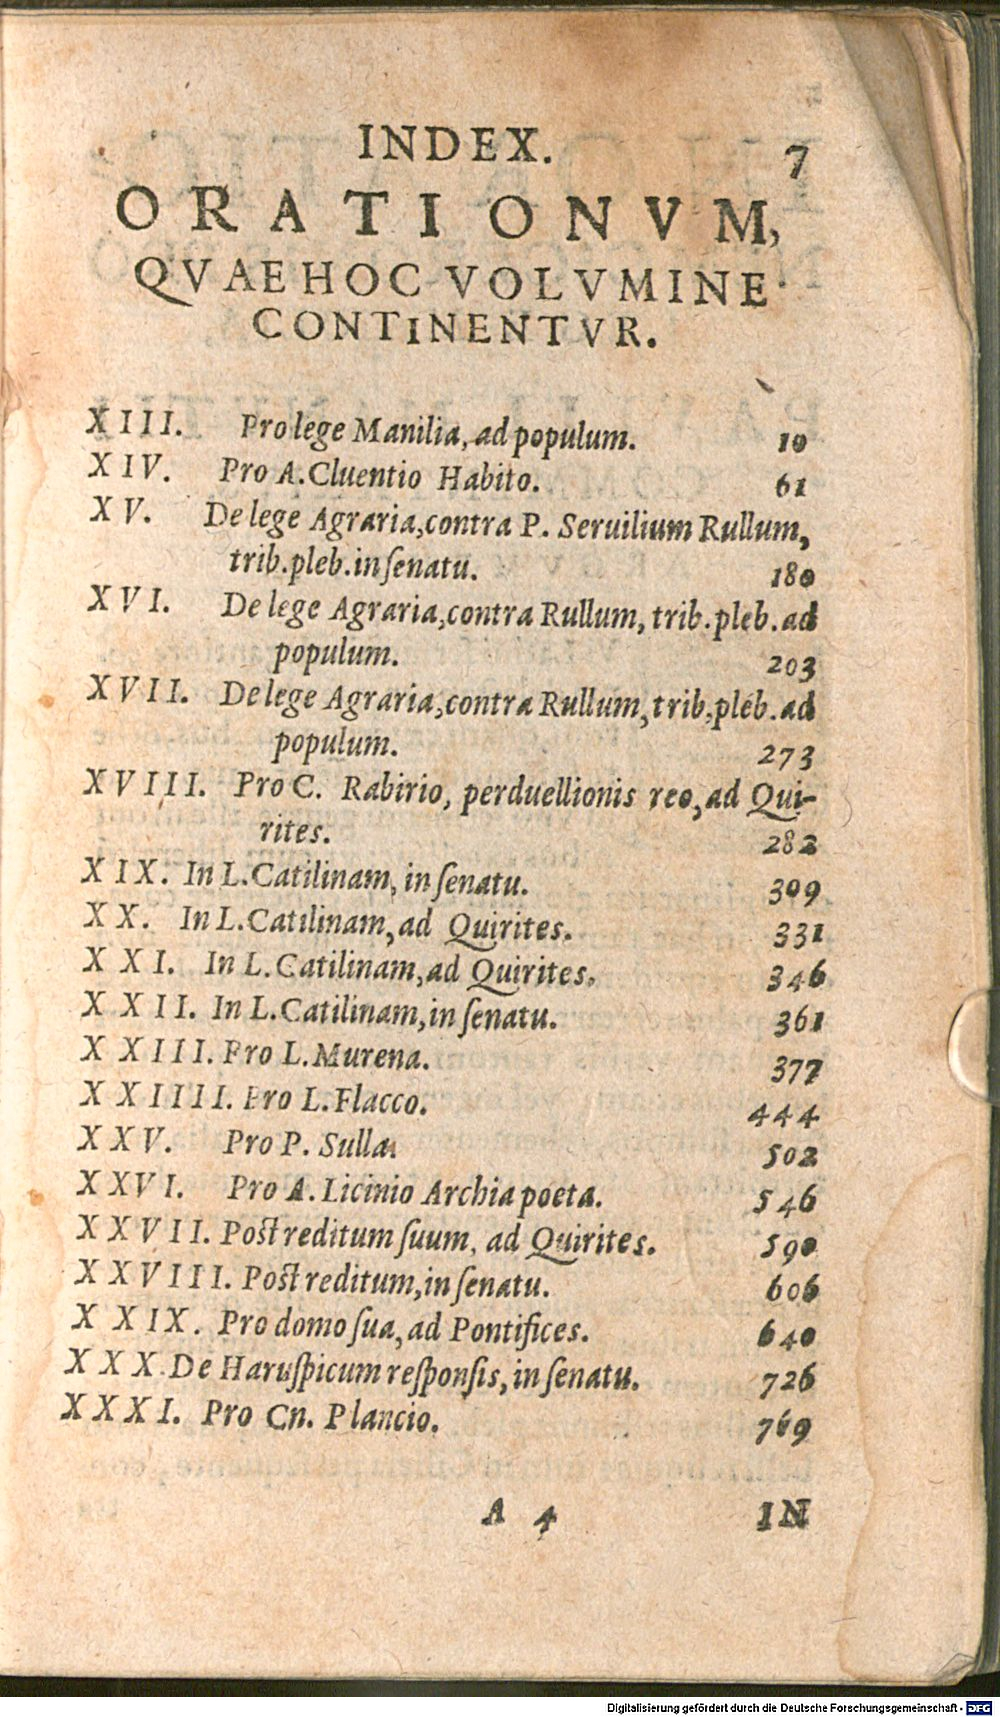 INDEX. 7
ORATIONVM,
QVAE HOC VOLVMINE
CONTINENTVR.
XIII. Pro lege Manilia, ad populum. 10
XIV. Pro A. Cluentio Habito. 61
XV. De lege Agraria, contra P. Seruilium Rullum,
trib. pleb. in ſenatu. 180
XVI. De lege Agraria, contra Rullum, trib. pleb. ad
populum. 203
XVII. De lege Agraria, contra Rullum, trib. pleb. ad
populum. 273
XVIII. Pro C. Rabirio, perduellionis reo, ad Qui-
rites. 282
XIX. In L. Catilinam, in ſenatu. 309
XX. In L. Catilinam, ad Quirites. 331
XXI. In L. Catilinam, ad Quirites. 346
XXII. In L. Catilinam, in ſenatu. 361
XXIII. Pro L. Murena. 377
XXIIII. Pro L. Flacco. 444
XXV. Pro P. Sulla. 502
XXVI. Pro A. Licinio Archia poeta. 546
XXVII. Poſt reditum ſuum, ad Quirites. 590
XXVIII. Poſt reditum, in ſenatu. 606
XXIX. Pro domo ſua, ad Pontifices. 640
XXX. De Haruſpicum reſponſis, in ſenatu. 726
XXXI. Pro Cn. Plancio. 769
A 4 IN
Digitalisierung gefördert durch die Deutsche Forschungsgemeinschaft - DFG